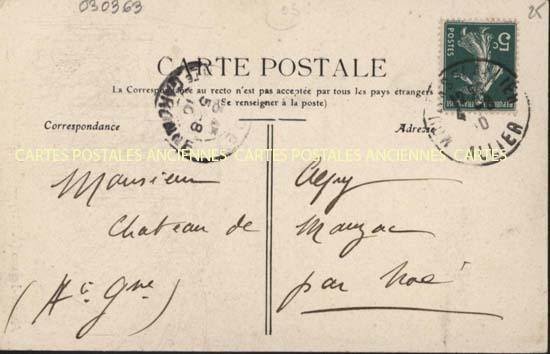 030363
25
CARTE POSTALE
La Correspondance au recto n'est pas acceptée par tous les pays étrangers
(Se renseigner à la poste)
Correspondance
Adresse
5c
POSTES
ALLIER
CARTES POSTALES ANCIENNES CARTES POSTALES ANCIENNES CARTES POSTALES ANCIENNES
Monsieur
Chateau de Mauzac
(Hte Gne) par Noé